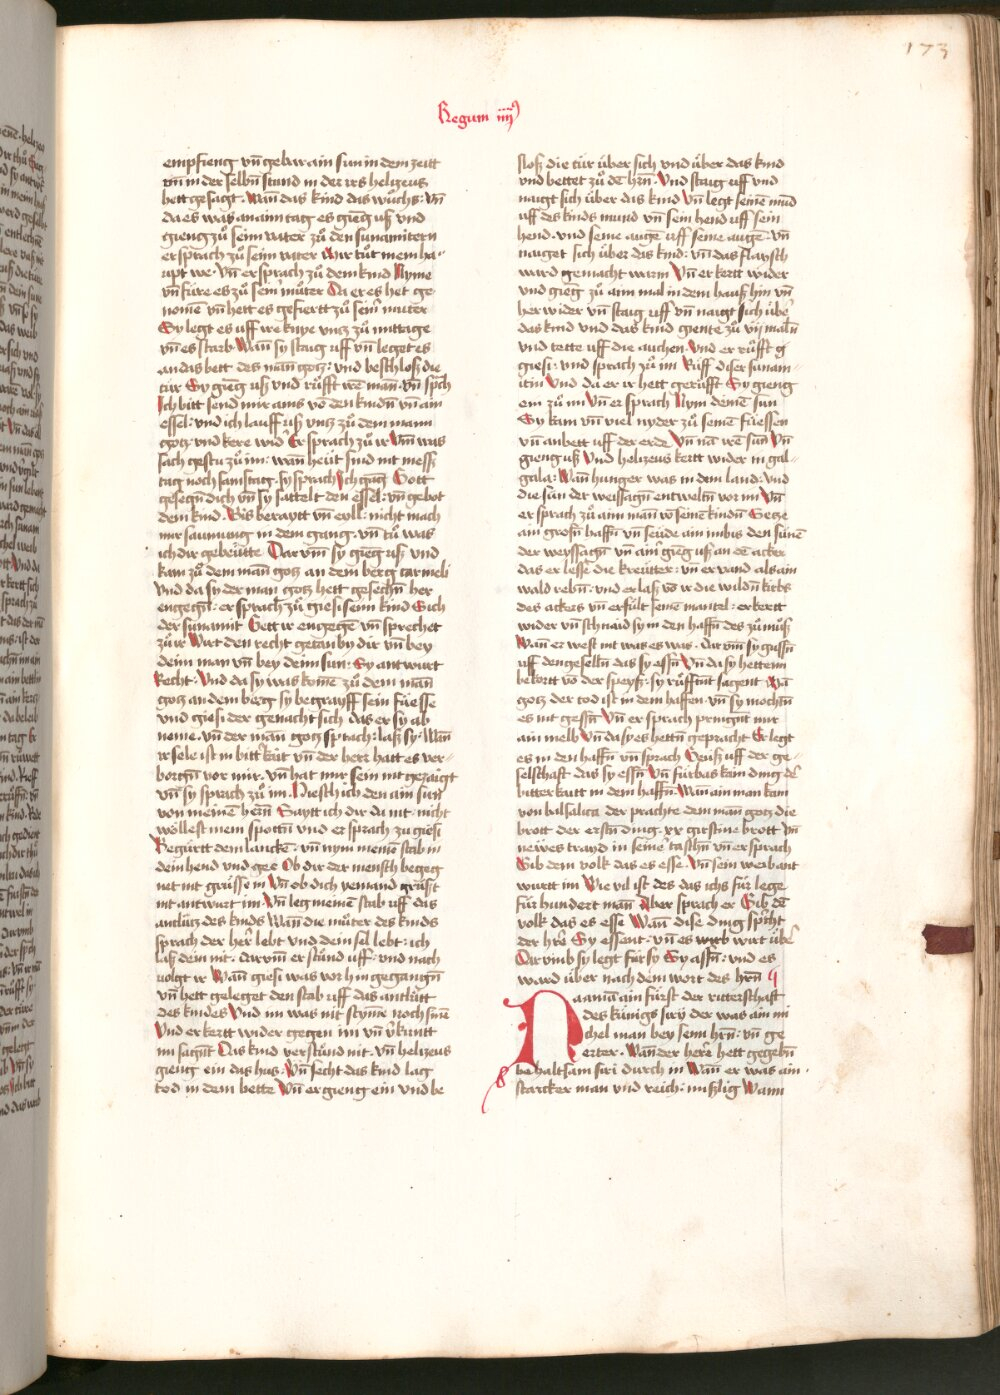 173
Regum iiij⁹
empfieng vn̄ gebar ain sun in dem zeitt
vn̄ in der selbn̄ stund in der irs helizeus
hett gesagt. Wan̄ das kind das wůchs: vn̄
da es was an aim tag es gieng uß vnd
gieng zů seim vater zů den sunamitern
er sprach zů seim vater Mir tůt mein ha-
upt we. Vn̄ er sprach zů dem kind Nyme
vn̄ füre es zů seiner můter Da er es het ge-
nomē vn̄ hett es gefiertt zů seiner můter
Sy legt es uff ire knye vntz zů mittage
vn̄ es starb. Wan̄ sy staig uff vn̄ leget es
an das bett des man̄ gotz: vnd beschloß die
tür Sy gieḡ uß vnd růfft irē man. vn̄ spͣch
Ich bitt send mir ains vō den kindn̄ vn̄ ain
essel: vnd ich lauff uß vntz zů dem mann
gotz vnd kere widͤ Er sprach zů ir Vm̄ was
sach gestu zů im: wan̄ heüt sind nit mess
tag noch samstag. sy sprach Ich gāg Gott
gesegn̄ dich vn̄ sy sattelt den essel: vn̄ gebot
dem kind. Bis beraytt vn̄ eyll: nicht mach
mir saumung in dem gang: vn̄ tů was
ich dir gebeütte Dar vm̄ sy gieḡ uß vnd
kam zů dem man̄ gotz an dem berg carmeli
Vnd da sy der man gotz hett gesechn̄ her
engegn̄: er sprach zů giesi seim kind Sich
der sunamit Gett ir engegē vn̄ sprechet
zů ir Wirt den recht getan by dir vn̄ bey
deim man vn̄ bey deim sun: Sy antwurt
Recht. Vnd da sy was komē zů dem man̄
gotz an dem berg sy begrayff sein füesse
vnd giesi der genacht sich das er sy ab
neme. vn̄ der man̄ gotz sprach: laß sy. Wan̄
ir sele ist in bitt'kait vn̄ der herr hatt es ver-
borgn̄ vor mir. vn̄ hat mir sein nit gezaigt
vn̄ sy sprach zů im. Hiesch ich den ain sun
von meinē hern̄ Saytt ich dir da nit. nicht
wöllest mein spottn̄ vnd er sprach zu giesi
Begürtt dem lancke. vn̄ nym meinē stab in
dein hend vnd gee Ob dir der mensch begeg
net nit grüsse in Vn̄ ob dich yemand grüst
nit antwurt im. Vn̄ leg meinē stab uff das
antlütz des kinds Wan̄ die můter des kinds
sprach der her lebt vnd dein sel lebt: ich
laß dein nit. darvm̄ er stůnd uff: vnd nach
volgt ir Wan̄ giesi was vor hin gegangn̄
vn̄ hett geleget den stab uff das antlütt
des kindes Vnd im was nit stymͤ noch sinē
Vnd er kertt wider gegen im vn̄ v̓kuntt
im sagn̄t Das kind verstůnd nit. Vn̄ helizeus
gieng ein das hus: Vn̄ secht das kind lag
tod in dem bette Vn̄ er gieng ein vnd be
sloß die tür über sich vnd über das kind
vnd bettet zů dē hrn̄. Vnd staig uff vnd
naigt sich über das kind Vn̄ legt seinē mūd
uff des kinds mund vn̄ sein hend uff sein
hend. vnd seine augē uff seine augē. vn̄
naiget sich über das kind: vn̄ das flaysch
ward gemacht warm Vn̄ er kertt wider
vnd gieḡ zů aim mal in dem hauß hin vn̄
her wider vn̄ staig uff vn̄ naigt sich übeͤ
das kind vnd das kind giente zů vij maln̄
vnd tette uff die auchen. Vnd er růfft g
giesi. vnd sprach zů im Rüff diser sunam-
itin Vnd da er ir hett gerüfft Sy gieng
ein zů im Vn̄ er sprach Nym deinē sun
Sy kam vn̄ viel nyder zů seinē füessen
vn̄ anbett uff der erde Vn̄ nā irē sun̄ Vn̄
gieng uß Vnd helizeus kertt wider in gal-
gala. Wan̄ hunger was in dem land: vnd
die sün der weissagn̄ entweltn̄ vor im Vn̄
er sprach zů aim man̄ vō seinē kindn̄ Setze
ain großn̄ haffn̄ vn̄ seüde ain imbis den sünē
der weyssagn̄ vn̄ aīr gieng uß an dē acker
das er lesse die kreütter: vn̄ er vand als ain
wald rebn̄: vnd er laß vō ir die wildn̄ kirbs
des ackers vn̄ erfült seinē mantel: er kertt
wider vn̄ schnaid sy in den haffn̄ des zů můß
Wan̄ er west nit was es was. Dar vm̄ sy gussn̄
uff den geselln̄ das sy essn̄ Vn̄ da sy hettenn
bekortt vō der speyß: sy růfftnt sagent Wā
gotz der tod ist in dem haffen. vn̄ sy mochtn̄
es nit gessn̄ Vn̄ er sprach pringn̄t mir
ain melb Vn̄ da sy es hettn̄ gepracht Er legt
es in den haffn̄ vn̄ sprach Geuß uff der ge-
selschaft das sy essn̄ Vn̄ fürbas kain ding dͤ
bitterkaitt in dem haffn̄. Wan ain man kam
von balsalica der prachte dem man̄ gotz die
brott der erstn̄ ding. xx girstine brott Vn̄
newes trayd in seine taschn̄ vn̄ er sprach
Gib dem volk das es esse. Vn̄ sein werb ant
wurtt im Wie vil ist des das ichs für lege
für hundert man̄ Aber sprach er Gib dē
volk das es esse Wan̄ dise ding sprͥcht
der hrͤ Sy essent. vn̄ es wirb wirt übeͤ
Dar vmb sy legt für sy Sy assn̄: vnd es
ward über nach dem wort des hrn̄ ¶
Naamā ain fürst der ritterschaft
des künigs siry der was ain mi
chel man bey seim hrn̄: vn̄ ge
erter. Wan̄ der herͤ hett gegebn̄
behaltsam siri durch in Wan̄ er was ain
starcker man vnd reich: mißlig Wann